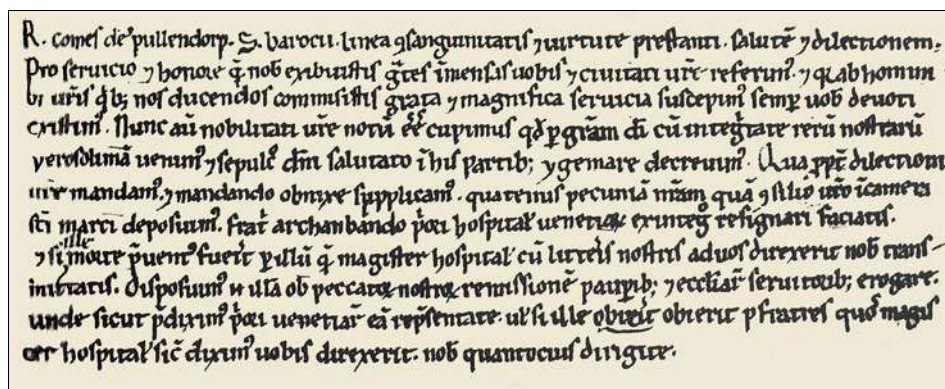 R. comes de pullendorp. S. barocii. linea ꝯsanguinitatis ⁊ uirtute prestanti. salutē ⁊ dilectionem.
Pro seruicio ⁊ honore q̄ nob̄ exibuistis gr̄tes īmensas uobis ⁊ ciuitati ur̄e referim᷒. ⁊ q̄a ab homini
b᷒ ur̄is qͥb; nos ducendos commisistis grata ⁊ magnifica seruicia suscepim᷒ semꝑ uob̄ deuoti
existim᷒. Nunc au̅ nobilitati ur̄e notū ee̅ cupimus qd̄ ꝑ grām di̅ cū integr̄tate rerū nostrarū
yerosolimā uenim᷒ ⁊ sepulc̄ dn̄i salutato ī his partib; ⁊ gemare decreuim᷒. Qua ꝓpt̄ dilectioni
ur̄e mandam᷒. ⁊ mandando obnixe supplicam᷒. quatenus pecuniā nr̄am quā ꝯsilio ur̄o ī cameri
sc̄i marci deposuim᷒. frat̄ archanbando p̄ori hospital̄ uenetiaꝝ ex integͦ resignari faciatis.
⁊ si ille morte p̄uent᷒ fuerit ꝑ illū q̄ magister hospital̄ cū litter̄is nostris ad uos direxerit nob̄ trans-
mittatis. Disposuim᷒ n̄ illā ob peccatoꝝ nostroꝝ remissionē pauꝑib; ⁊ eccl̄iar̄ seruitorib; erogare.
unde sicut p̄diximus p̄ori uenetiar̄ eā rep̄sentate. ul̄ si ille obierit obierit ꝑ fratres quoͣ magis
ter hospital̄ sic̄ dixim᷒ uobis direxerit. nob̄ quantocius dirigite.